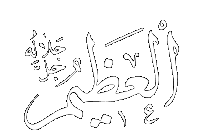 العظيم
جل جلاله